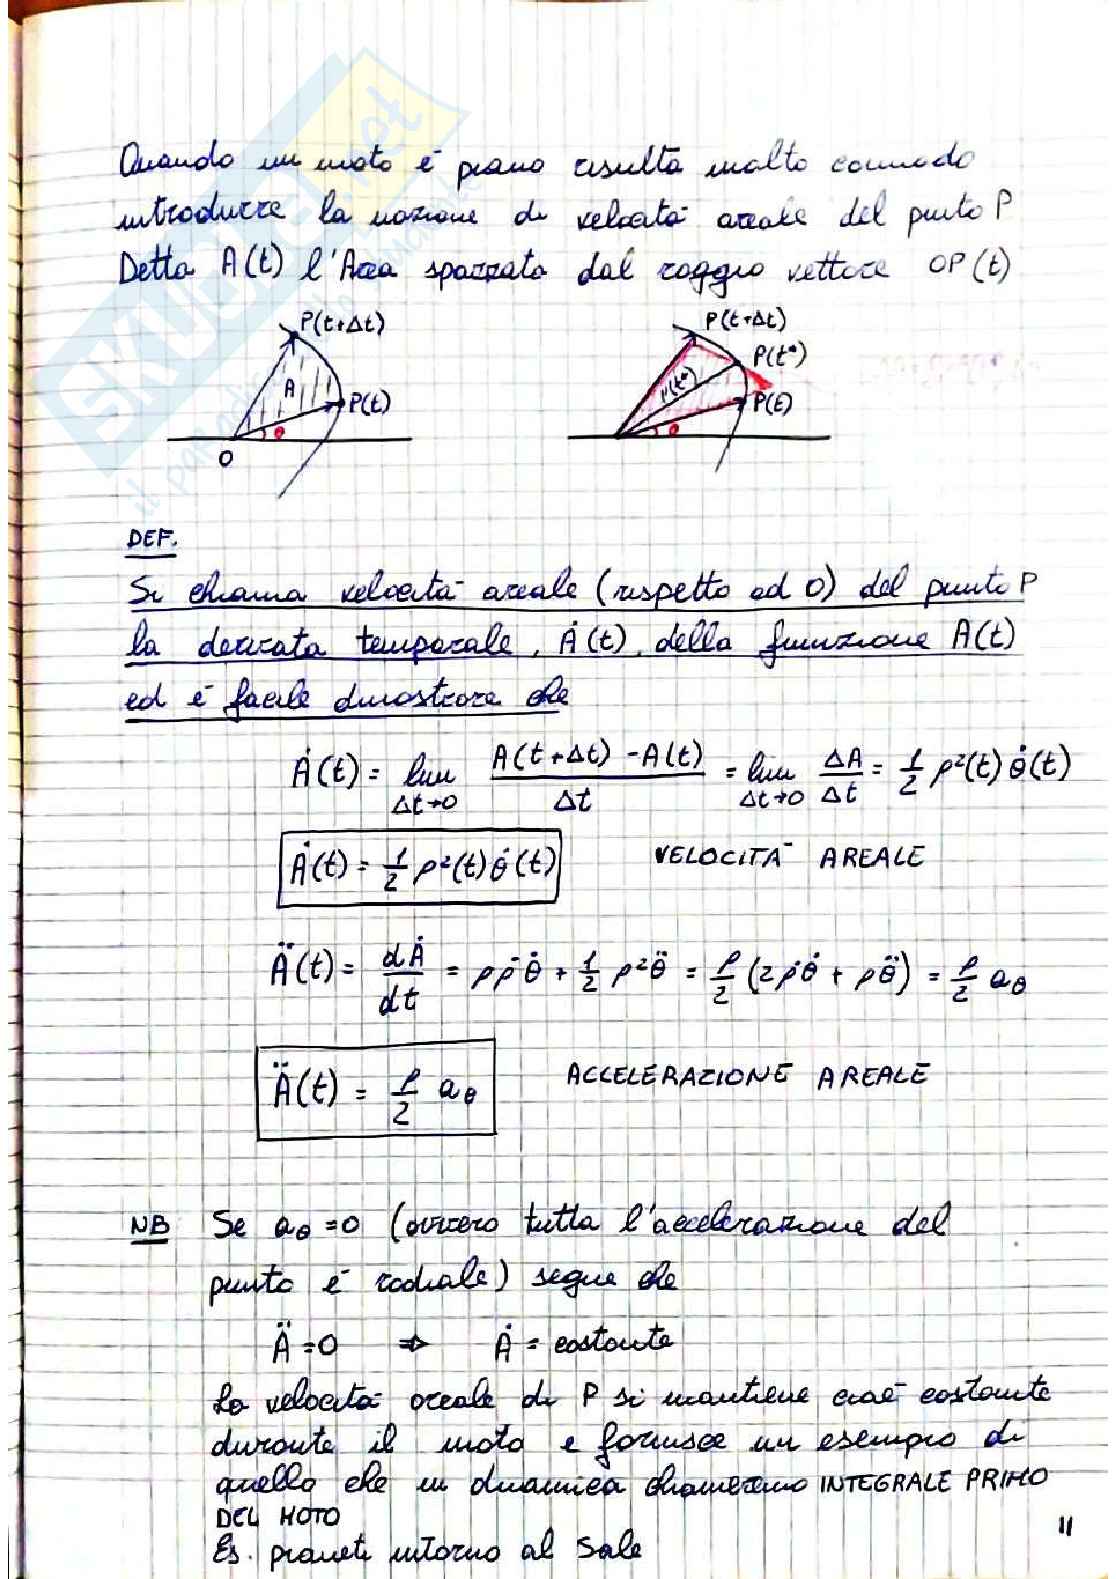 Quando un moto è piano risulta molto comodo
introdurre la nozione di velocità areale del punto P
Detta A(t) l'Area spazzata dal raggio vettore OP(t)
P(t+Δt)
A
P(t)
θ
O
P(t+Δt)
P(t*)
r(t*)
P(t)
θ
DEF.
Si chiama velocità areale (rispetto ad O) del punto P
la derivata temporale, Ȧ(t), della funzione A(t)
ed è facile dimostrare che
Ȧ(t) = lim Δt→0 (A(t+Δt) - A(t))/Δt = lim Δt→0 ΔA/Δt = 1/2 ρ²(t) θ̇(t)
Ȧ(t) = 1/2 ρ²(t) θ̇(t) VELOCITÀ AREALE
Ä(t) = dȦ/dt = ρρ̇θ̇ + 1/2 ρ²θ̈ = ρ/2 (2ρ̇θ̇ + ρθ̈) = ρ/2 aθ
Ä(t) = ρ/2 aθ ACCELERAZIONE AREALE
NB Se aθ = 0 (ovvero tutta l'accelerazione del
punto è radiale) segue che
Ä = 0 ⇒ Ȧ = costante
La velocità areale di P si mantiene cioè costante
durante il moto e fornisce un esempio di
quello che in dinamica chiameremo INTEGRALE PRIMO
DEL MOTO
Es. pianeti intorno al Sole
11
SKUOLA.net